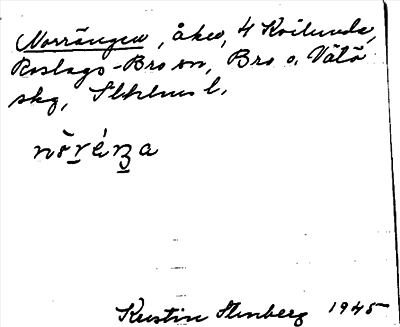 Norrängen, åker, 4 Koilunda,
Roslags-Bro sn, Bro o. Vätö
skg, Sthlms l.
nòrénʒa
Kerstin Stenberg 1945